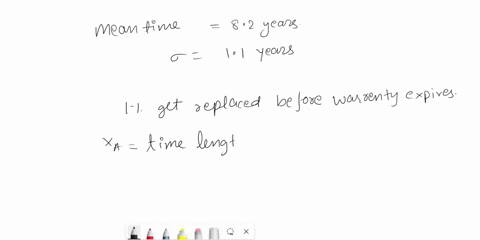 mean time = 8.2 years
σ = 1.1 years
1-1. get replaced before warrenty expires.
x_A = time lengt